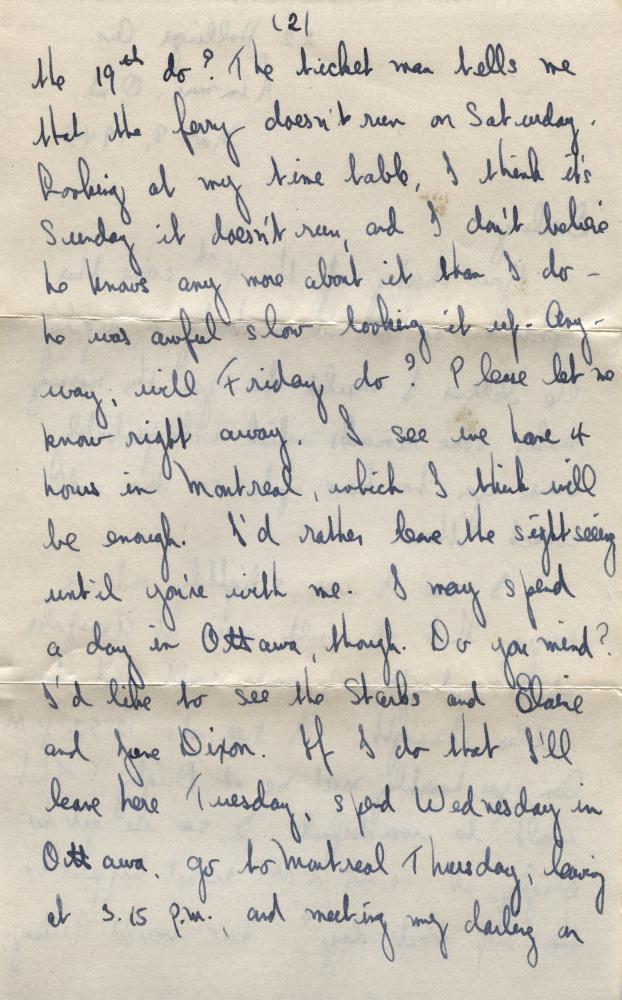 (2)
the 19th do? The ticket man tells me
that the ferry doesn't run on Saturday.
Looking at my time table, I think it's
Sunday it doesn't run, and I don't believe
he knows any more about it than I do –
he was awful slow looking it up. Any-
way, will Friday do? Please let me
know right away. I see we have 4
hours in Montreal, which I think will
be enough. I'd rather leave the sightseeing
until you're with me. I may spend
a day in Ottawa, though. Do you mind?
I'd like to see the and
and June Dixon. If I do that I'll
leave here Tuesday, spend Wednesday in
Ottawa, go to Montreal Thursday, leaving
at 3.15 p.m., and meeting my darling on